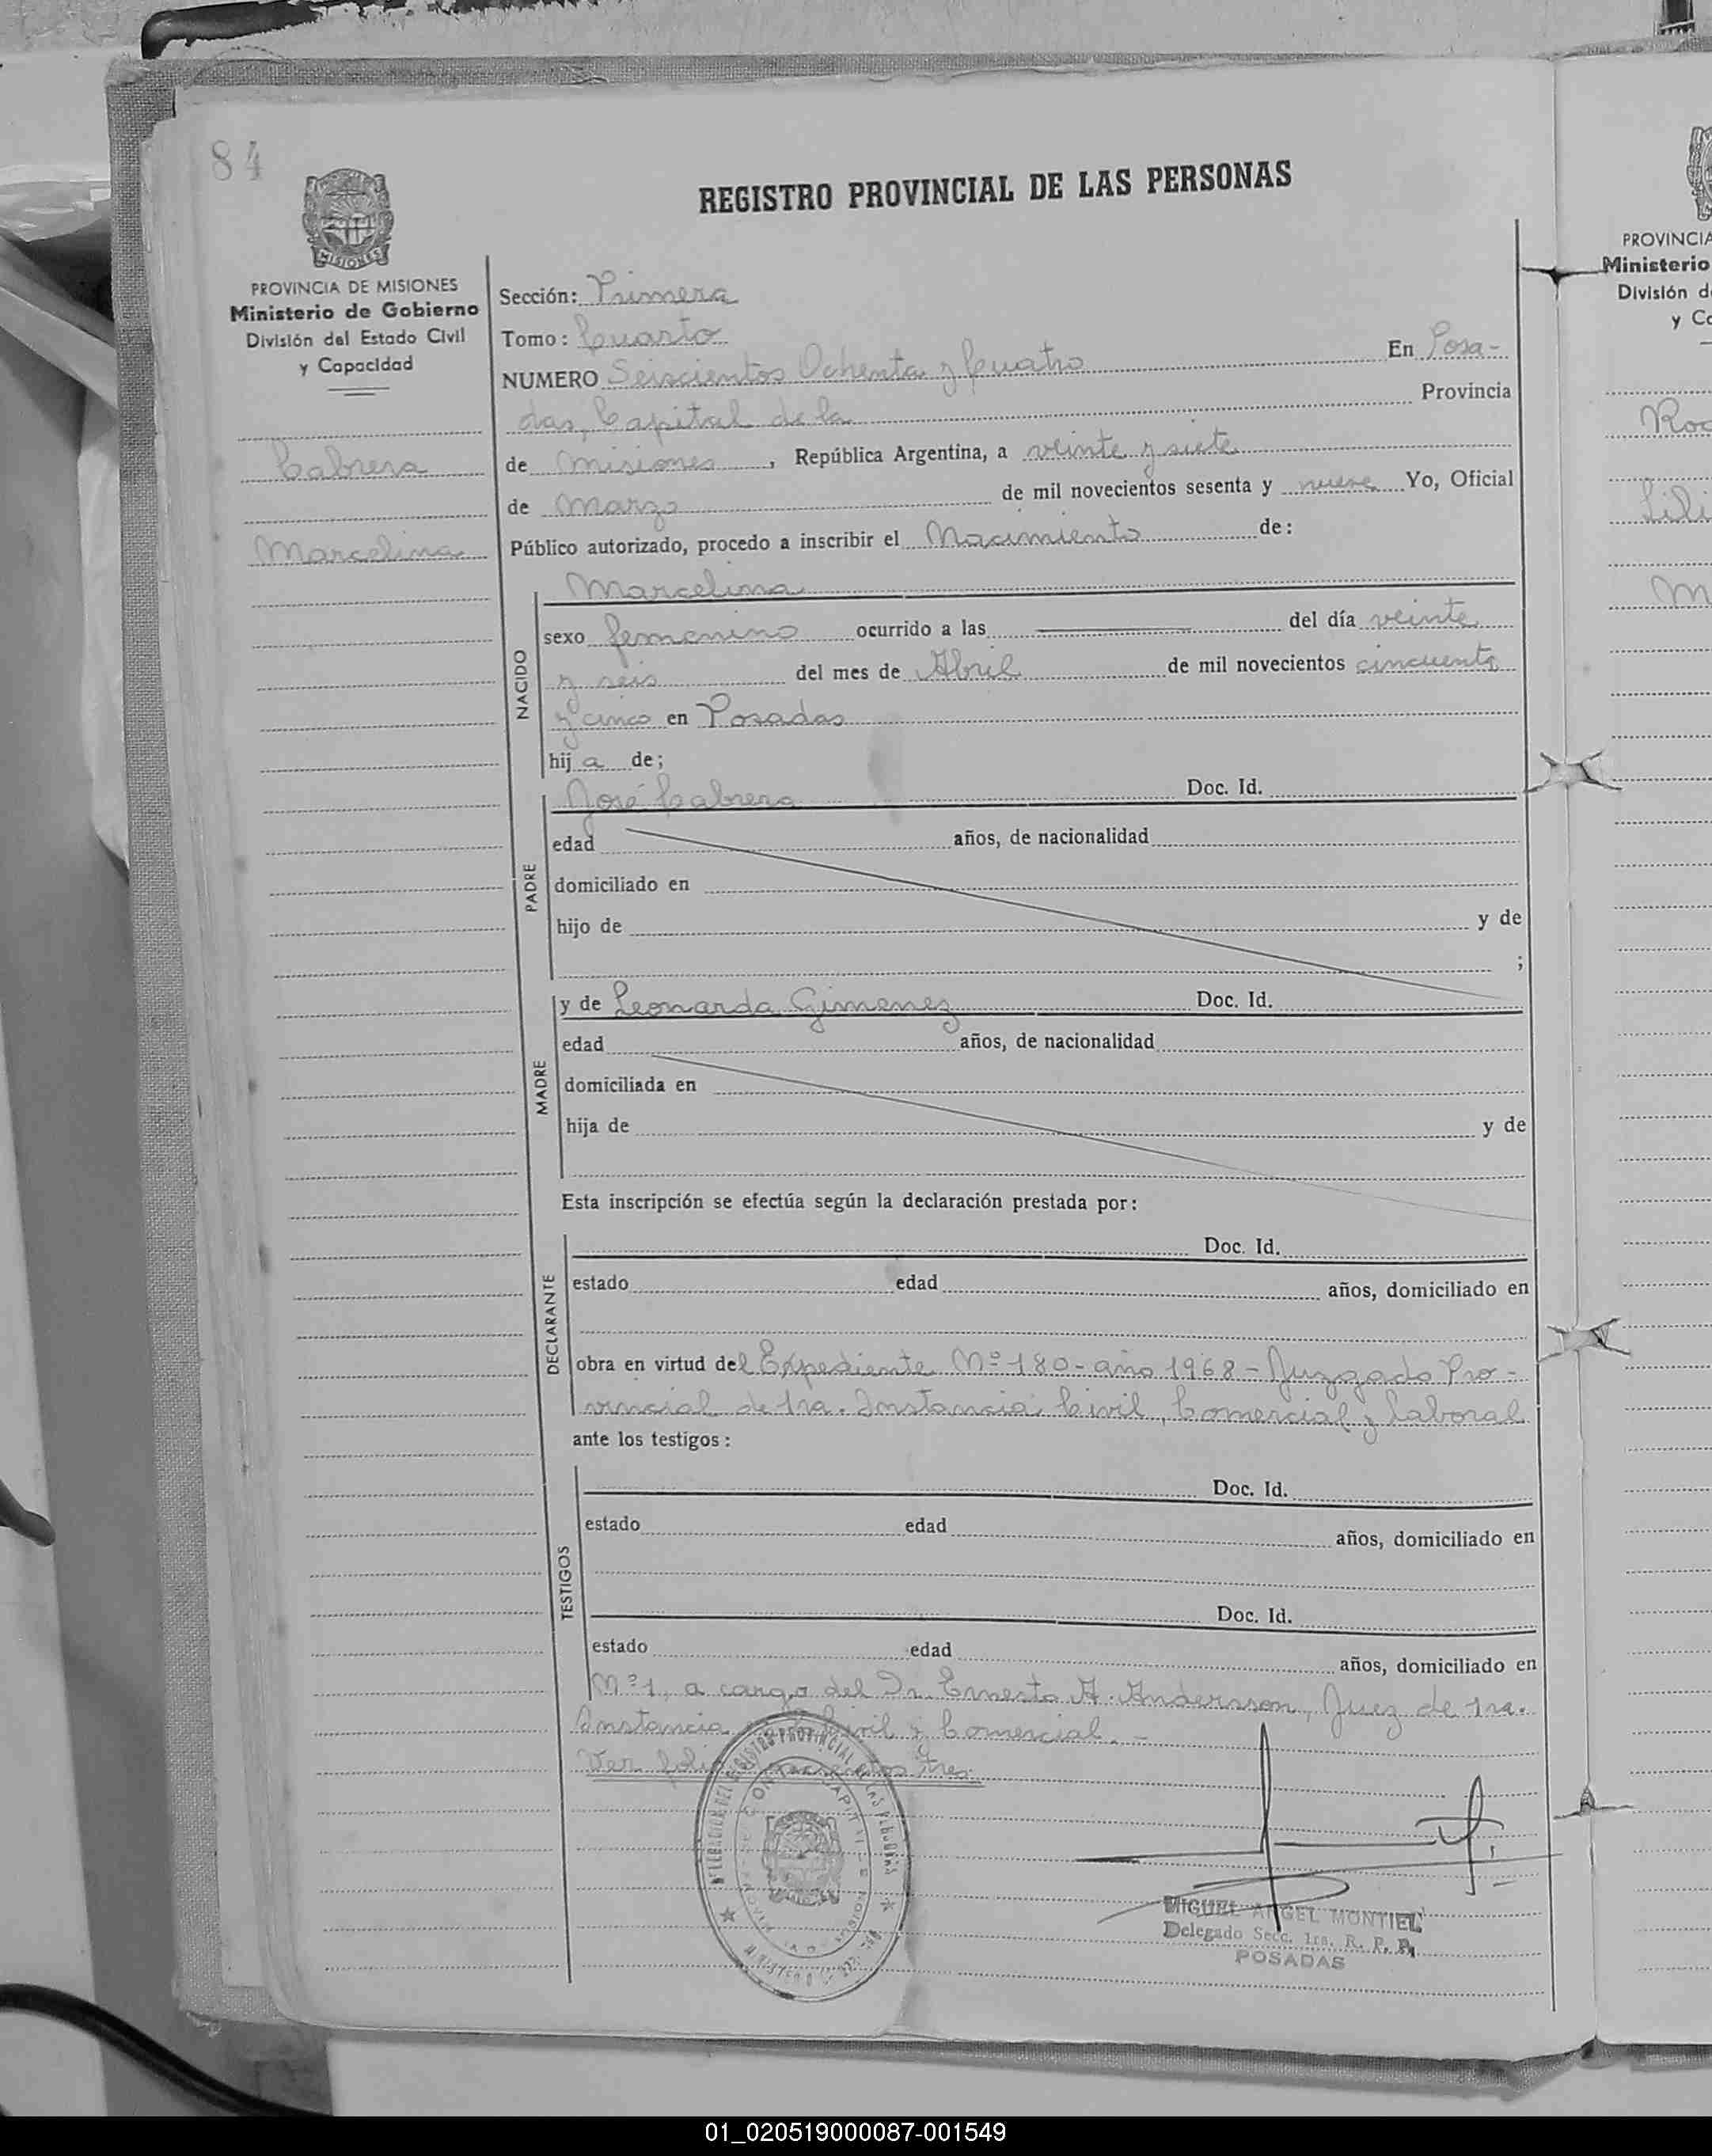 84
REGISTRO PROVINCIAL DE LAS PERSONAS
MISIONES
PROVINCIA DE MISIONES
Ministerio de Gobierno
División del Estado Civil
y Capacidad
Cabrera
Marcelina
Sección: Primera
Tomo: Cuarto
NUMERO Seiscientos Ochenta y Cuatro En Posa-
das, Capital de la Provincia
de Misiones, República Argentina, a veinte y siete
de Marzo de mil novecientos sesenta y nueve Yo, Oficial
Público autorizado, procedo a inscribir el Nacimiento de:
NACIDO
Marcelina
sexo femenino ocurrido a las del día veinte
y seis del mes de Abril de mil novecientos cincuenta
y cinco en Posadas
hija de;
PADRE
José Cabrera Doc. Id.
edad años, de nacionalidad
domiciliado en
hijo de y de
;
MADRE
y de Leonarda Gimenez Doc. Id.
edad años, de nacionalidad
domiciliada en
hija de y de
Esta inscripción se efectúa según la declaración prestada por:
DECLARANTE
Doc. Id.
estado edad años, domiciliado en
obra en virtud del Expediente Nº 180-año 1968-Juzgado Pro-
vincial de 1ra. Instancia Civil, Comercial y laboral
ante los testigos:
TESTIGOS
Doc. Id.
estado edad años, domiciliado en
Doc. Id.
estado edad años, domiciliado en
Nº 1, a cargo del Dr. Ernesto A. Andersson, Juez de 1ra.
Instancia Civil y Comercial.-
Ver folio trescientos tres
MIGUEL ANGEL MONTIEL
Delegado Secc. 1ra. R. P. P.
POSADAS
PROVINCIA
Ministerio
División d
y Ca
Rod
Lili
M
01_020519000087-001549